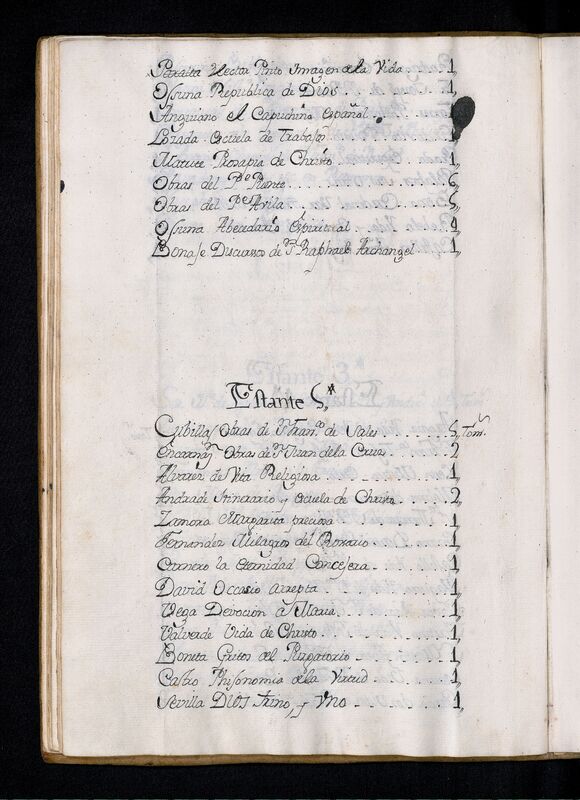 Peralta Hector Pinto Imagen de la Vida . 1,
Ossuna Republica de Dios . 1,
Anguiano el Capuchino Español . 1,
Lozada escuela de Trabajos 1,
Matute Prosapia de Christo 1,
Obras del Pe Puente . . . . 6,
Obras del Pe Avila . . . . 5,
Ossuna Abecedario Espiritual . . 4,
Bonafe Discursos de Sn Raphael Archangel . 1,
Estante 5,
Cubillas Obras de Sn Franco de Sales . . . 5, Tom.s
Encarnaz.n Obras de Sn Juan de la Cruz . . . 2
Alvarez de Vita Religiosa . . . . 1,
Andrade Itinerario y escuela de Christo . . 2,
Zamora Margarita preciosa . . . . 1,
Fernandez Milagros del Rosario . . . 1,
Carnero la eternidad Consejera . . . . 1,
David Occasio arrepta . . . . 1,
Vega Devocion a Maria . . . . 1,
Valverde Vida de Christo . . . . 1,
Boneta Gritos del Purgatorio . . . . 1,
Castro Phisonomia de la Virtud . . . . 1,
Sevilla DIOS trino, y Vno . . . . 1,